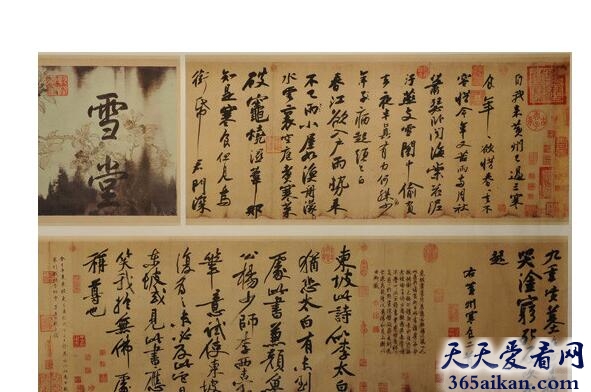 雪堂
自我來黃州已過三寒
食年〻欲惜春〻去不
容惜今年又苦雨兩月秋
蕭瑟臥聞海棠花泥
汙燕支雪闇中偷負
去夜半真有力何殊少
年子病起頭已白
春江欲入戶雨勢來
不已雨小屋如漁舟濛〻
水雲裏空庖煮寒菜
破竈燒濕葦那
知是寒食但見烏
銜帋君門深
九重墳墓
哭塗窮死
起
右黃州寒食二
東坡此詩似李太白
猶恐太白有未到
處此書兼顏魯
公楊少師李西臺
筆意試使東坡
復為之未必及此
東坡或見此書應
笑我於無佛處
稱尊也
天天爱看网
365aikan.com